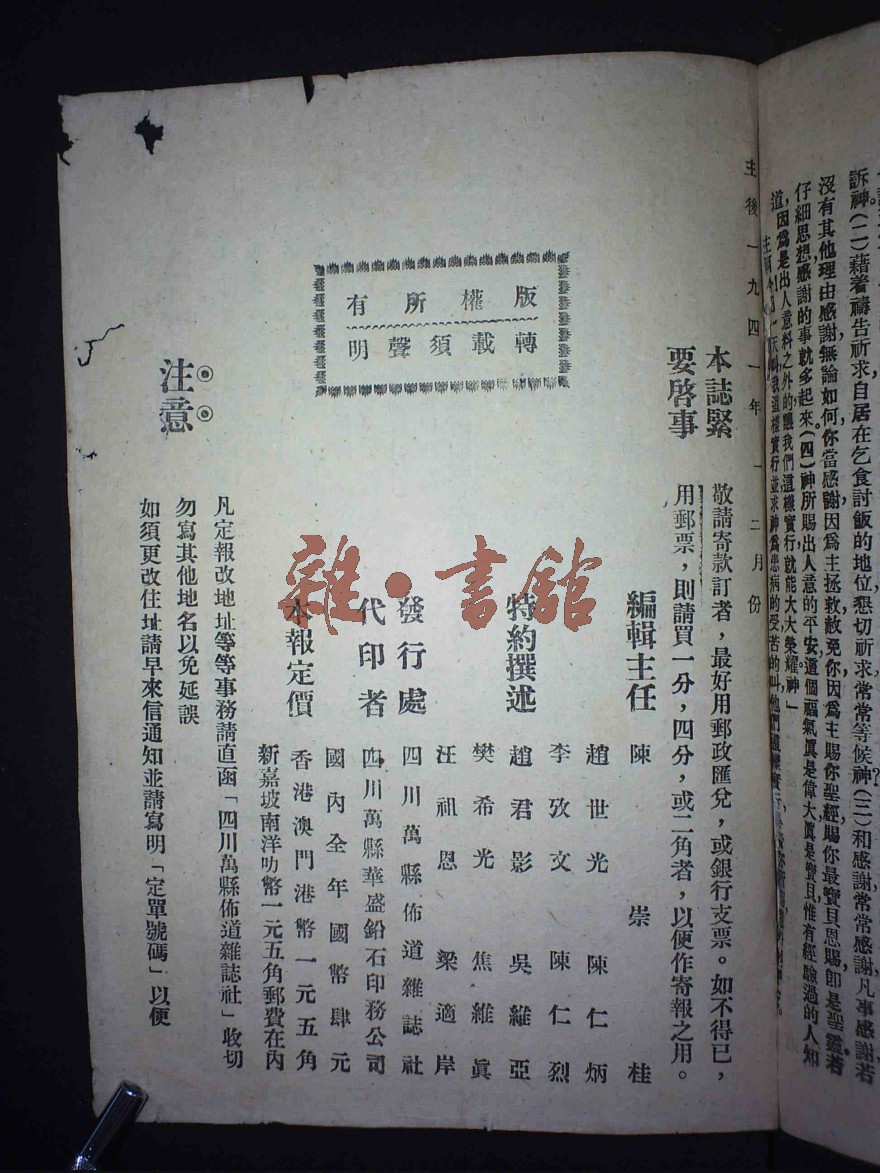 訴神(二)藉着禱告祈求自居在乞食討飯的地位懇切祈求常常等候神(三)和感謝常常感謝,凡事感謝若
沒有其他理由感謝無論如何你當感謝因爲主拯救赦免你因爲主賜你聖經賜你最寶貝恩賜卽是聖靈若
仔細思想感謝的事就多起來。(四)神所賜出人意的平安這個福氣眞是偉大眞是寶貝惟有經驗過的人知
道,因爲是出人意料之外的讓我們這樣實行就能大大榮耀神」
主後一九四一年一二月份
本誌緊
要啓事
敬請寄款訂者,最好用郵政匯兌,或銀行支票。如不得已,
用郵票,則請買一分,四分,或二角者,以便作寄報之用。
版權所有
轉載須聲明
編輯主任 陳崇桂
特約撰述
趙世光 陳仁炳
李攷文 陳仁烈
趙君影 吳維亞
樊希光 焦維眞
汪祖恩 梁適岸
發行處 四川萬縣佈道雜誌社
代印者 四川萬縣華盛鉛石印務公司
本報定價
國內全年國幣肆元
香港澳門港幣一元五角
新嘉坡南洋叻幣一元五角郵費在內
注意
凡定報改地址等等事務請直函「四川萬縣佈道雜誌社」收切
勿寫其他地名以免延誤
如須更改住址請早來信通知並請寫明「定單號碼」以便
雜·書館